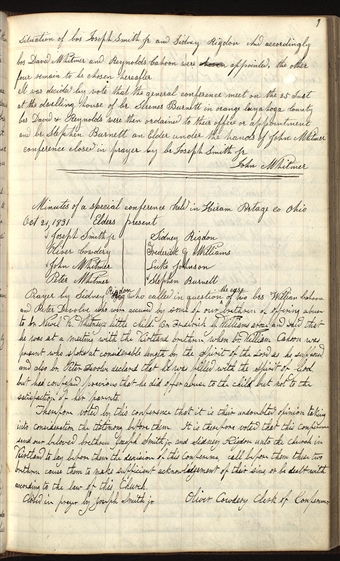 9
situation of brs Joseph Smith jr and Sidney Rigdon And accordingly
brs David Whitmer and Reynolds Cahoon were appointed, the other
four remain to be chosen hereafter
It was decided by vote that the general conference meet on the 25 Inst
at the dwelling house of br Sirenes Burnett in orange Cuyahoga County
brs David & Reynolds were then ordained to their office or appointment
and br Stephen Burnett an Elder under the hands of John Whitmer
conference closed in prayer by br Joseph Smith jr
John Whitmer
Minutes of a special conference held in Hiram Portage co Ohio
Oct 21, 1831 Elders present
Joseph Smith jr Sidney Rigdon
Oliver Cowdery Frederick G Williams
John Whitmer Luke Johnson
Peter Whitmer Stephen Burnett
Prayer by Sidney Rigdon who called in question the case of two brs William Cahoon
and Peter Devolve who were accused by some of our brethren of offering abuse
to br Newel K. Whitneys little child. Br Frederick G Williams arose and said that
he was at a meeting with the Kirtland brethren when br William Cahoon was
present who spoke at considerable length by the Spirit of the Lord as he supposed
and also br Peter Devolve declared that he was filled with the Spirit of God
but had confessed previous that he did offer abuse to the child but not to the
satisfaction of her parents.
Therefore voted by this conference that it is their undoubted opinion taking
into consideration the testimony before them. It is therefore voted that this conference
send our beloved brethren Joseph Smith jr. and Sidney Rigdon unto the church in
Kirtland to lay before them the decision of this conference, call before them these two
brethren cause them to make sufficient acknowledgement of their sins or be dealt with
according to the law of this Church.
Closed in prayer by Joseph Smith jr. Oliver Cowdery Clerk of Conference